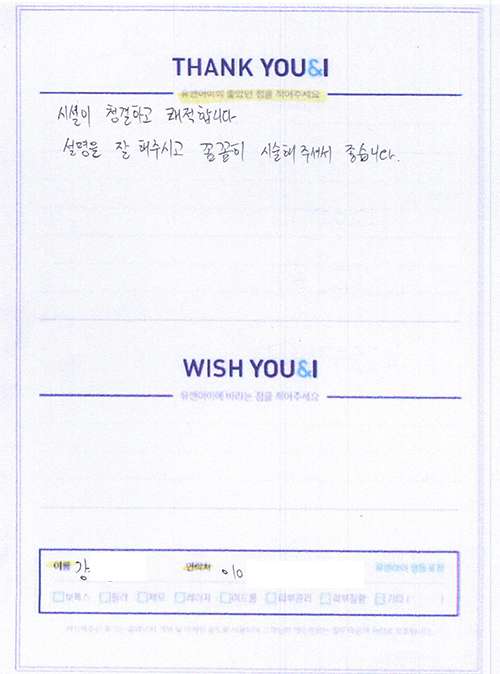 THANK YOU&I
유앤아이의 좋았던 점을 적어주세요
시설이 청결하고 쾌적합니다
설명을 잘 해주시고 꼼꼼히 시술해주셔서 좋습니다.
WISH YOU&I
유앤아이에 바라는 점을 적어주세요
이름 강 연락처 010 유앤아이 명동점
보톡스 필러 제모 레이저 여드름 피부관리 피부질환 기타 ( )